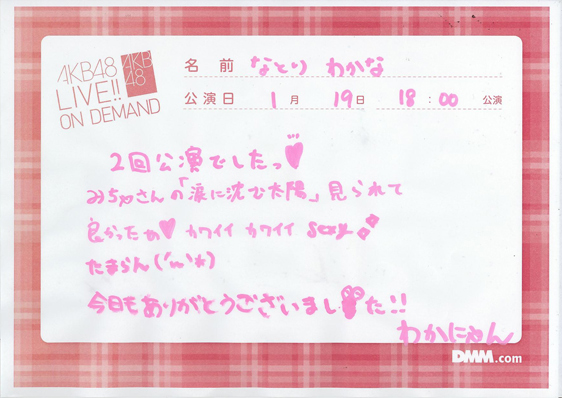 AKB48
LIVE!!
ON DEMAND
AKB
48
名 前 なとり わかな
公演日 1月 19日 18:00 公演
2回公演でしたっ
みちゃさんの「涙に沈む太陽」見られて
良かったぁ カワイイ カワイイ sexy
たまらん('ω'*)
今日もありがとうございました!!
わかにゃん
DMM.com